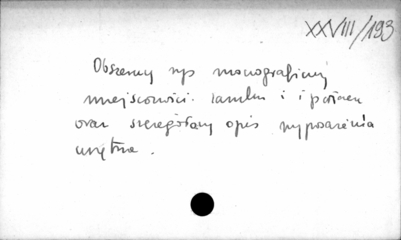 XXVIII/193
Obszerny rys monograficzny
miejscowości. zamku i i pałacu
oraz szczegółowy opis wyposażenia
wnętrza.